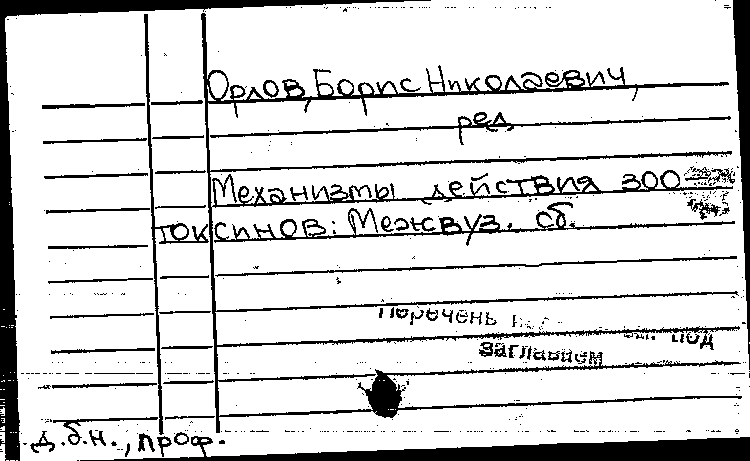 Орлов, Борис Николаевич,
ред.
Механизмы действия зоо-
токсинов: Межвуз. сб.
Перечень под
заглавием
д.б.н., проф.